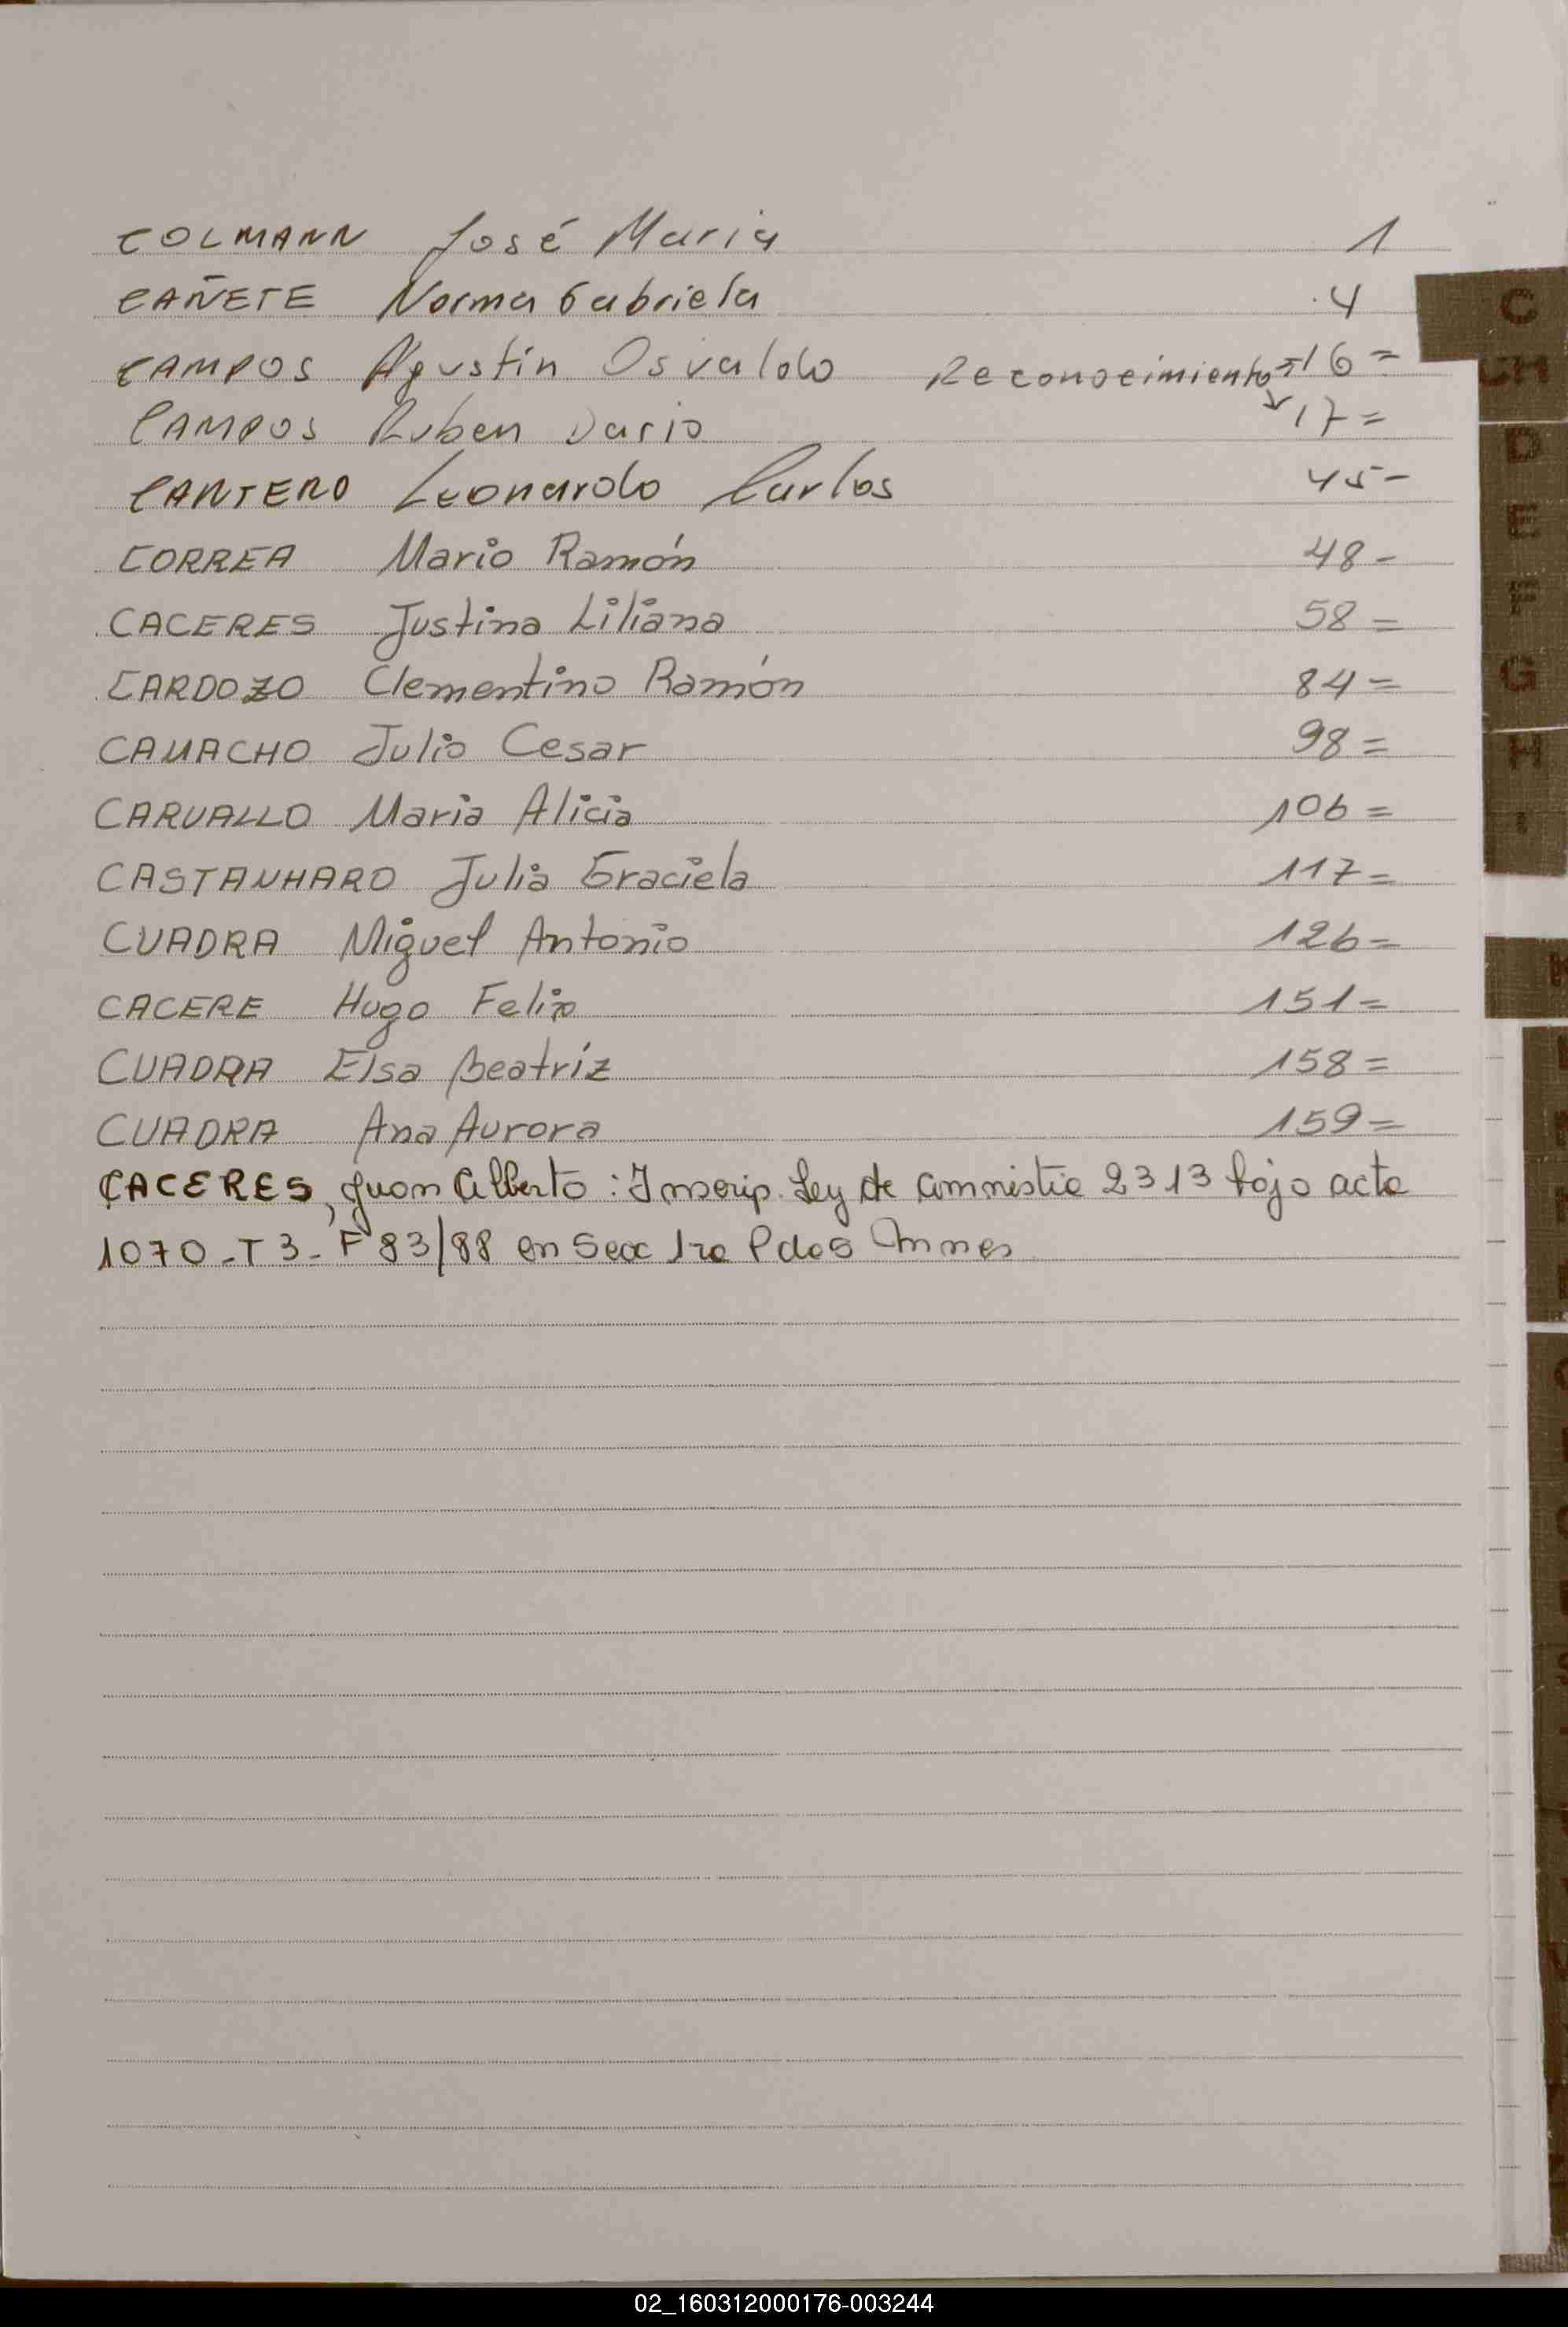 COLMANN José Maria 1
CAÑETE Norma Gabriela 4
CAMPOS Agustín Osvaldo Reconocimiento → 16 =
CAMPOS Ruben Dario ↘ 17 =
CANTERO Leonardo Carlos 45 -
CORREA Mario Ramón 48 -
CACERES Justina Liliana 58 =
CARDOZO Clementino Ramón 84 =
CAMACHO Julio Cesar 98 =
CARVALLO Maria Alicia 106 =
CASTANHARO Julia Graciela 117 =
CUADRA Miguel Antonio 126 =
CACERE Hugo Felix 151 =
CUADRA Elsa Beatríz 158 =
CUADRA Ana Aurora 159 =
CACERES, Juan Alberto: Inscrip. Ley de amnistia 2313 bajo acta
1070 - T 3 - F 83/88 en Secc 1ra Pdas
C
CH
D
E
F
G
H
I
K
02_160312000176-003244